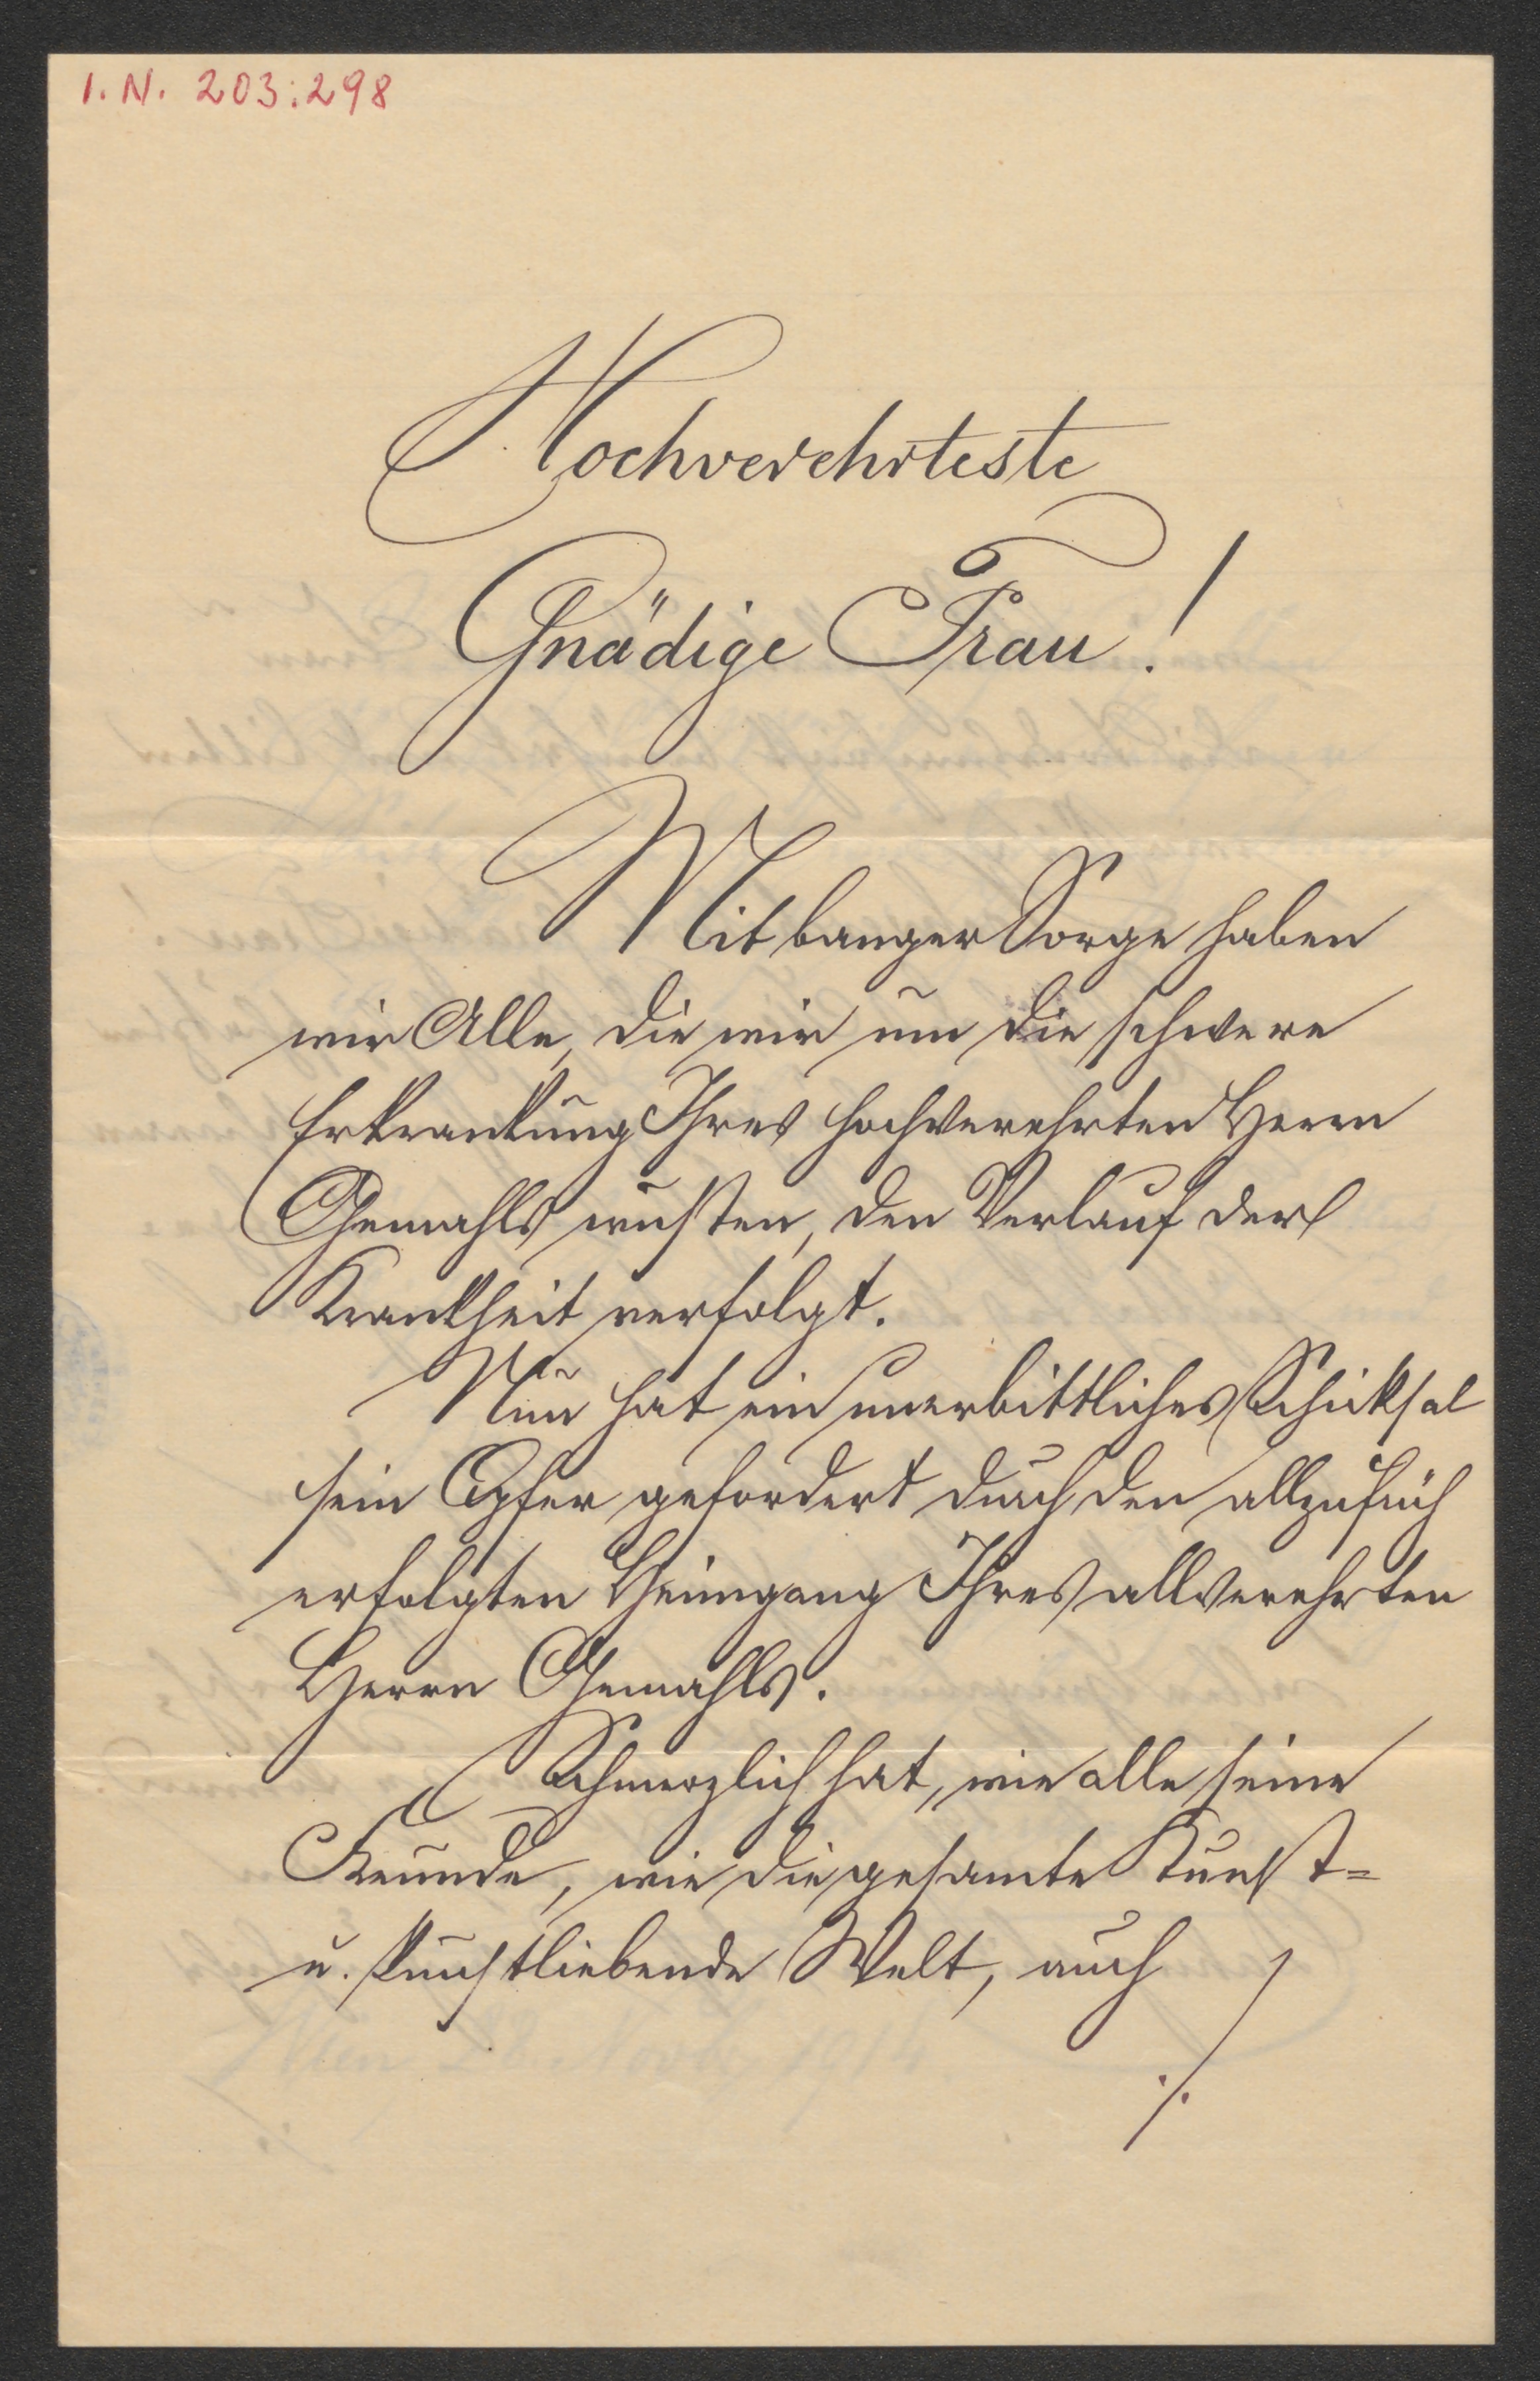 I. N. 203:298
Hochverehrteste
Gnädige Frau!
Mit banger Sorge haben
wir Alle, die wir um die schwere
Erkrankung Ihres hochverehrten Herrn
Gemahls wußten, den Verlauf der
Krankheit verfolgt.
Nun hat ein unerbittliches Schicksal
sein Opfer gefordert durch den allzufrüh
erfolgten Heimgang Ihres allverehrten
Herrn Gemahls.
Schmerzlich hat, wie alle seine
Freunde, wie die gesamte Kunst=
u. kunstliebende Welt, auch
./.